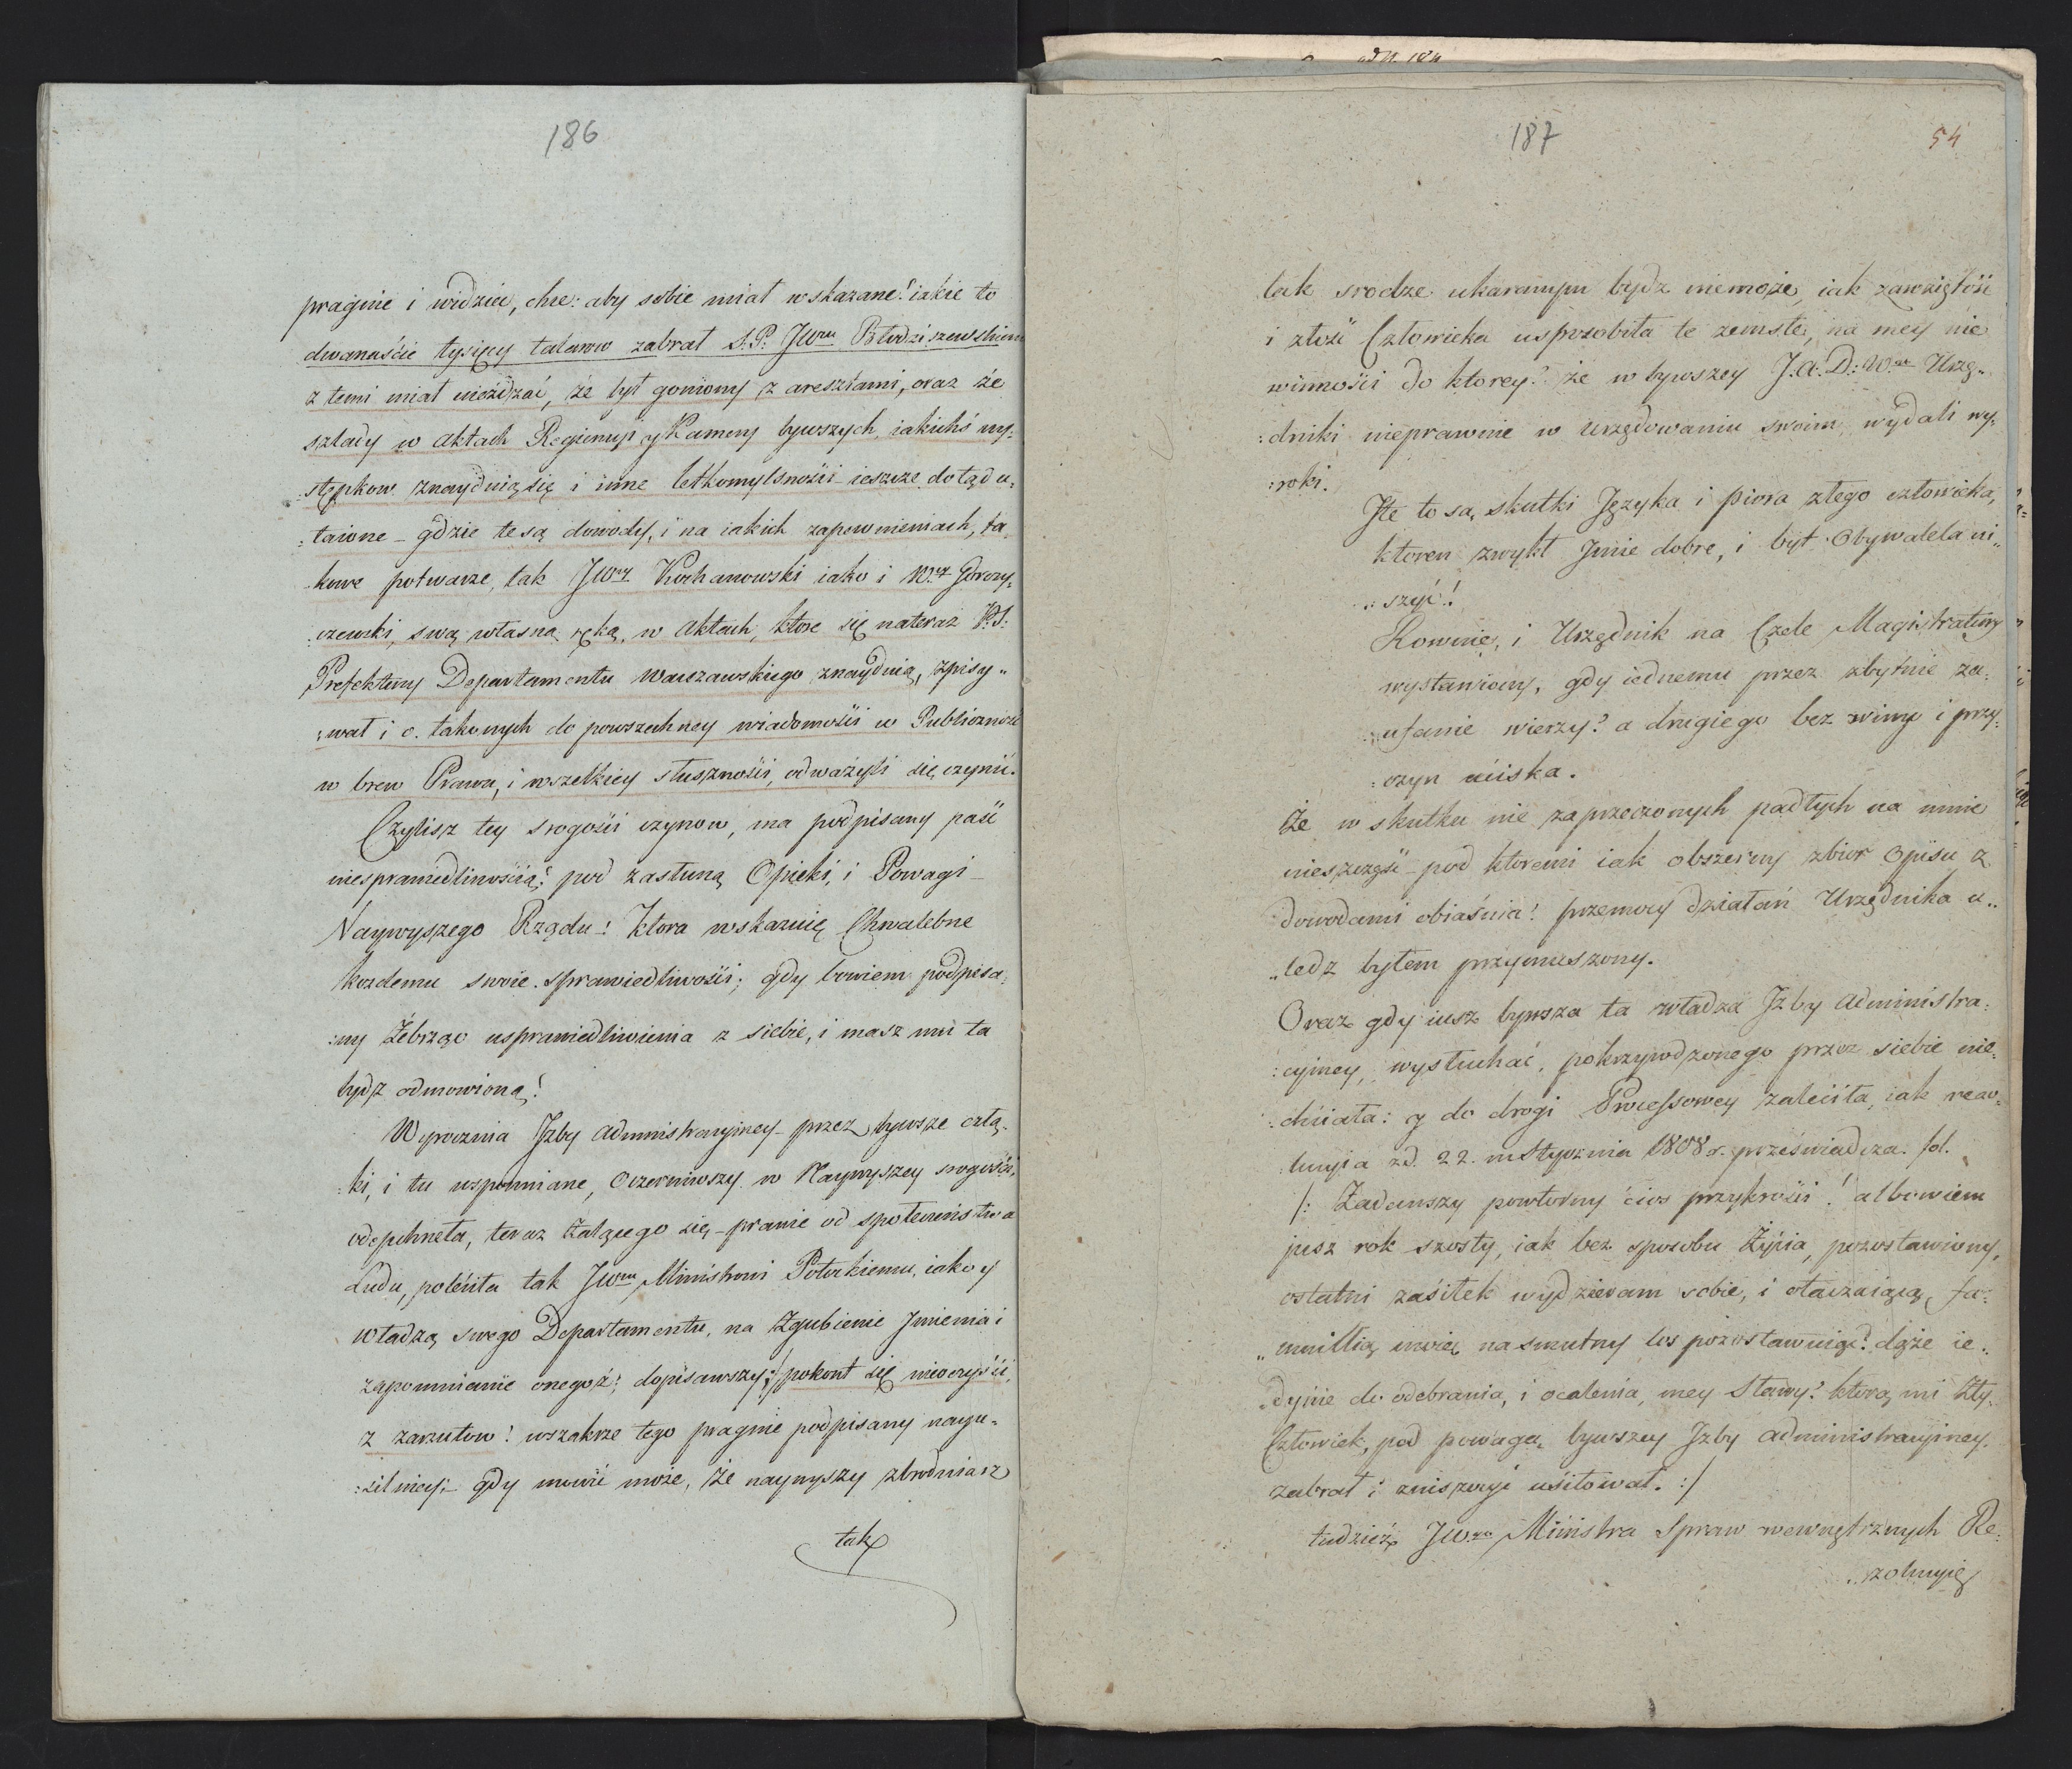 186
pragnie i widziec, chce: aby sobie miał wskazane! iakie to
dwanaście tysięcy talarow zabrał S. P. JWmu Błodziszewskiemu
z temi miał uieżdżać, że był goniony z aresztami, oraz że
szlady w aktach Regiencyi y Kamery bywszych, iakichś wy:
:stępkow znaydnią się i inne letkomylsności ieszcze dotąd u:
:taione – gdzie te są dowody, i na iakich zapewnieniach, ta
:kowe potwarze, tak JWny Kochanowski iako i W.ny Gorczy:
:czewski, swą własną ręką, w aktach, ktore się nateraz P. S:
Prefektury Departamentu Warszawskiego znaydnią, spisy„
„wał i o. takowych do powszechney wiadomości w Publiczność
w brew Prawu, i wszelkiey słuszności, odważyli się czynić.
Czylisz tey srogości czynow, ma podpisany paść
niesprawiedliwością? pod zasłuną Opieki, i Powagi –
Naywyszego Rządu –! Ktora wskazuię Chwalebne
kozdemu swoie sprawiedliwości; gdy bowiem podpisa:
:ny Żebrząc usprawiedliwienia z siebie, i masz mu ta
bydz odmowioną!
Wyrocznia Izby Administracyiney – przez bywsze człą:
:ki, i tu wspomniane, Oczerniwszy w Naywyszey srogości,
odepchneła, teraz Żaląccgo się – prawie od społeczeństwa
Ludu, poleciła tak JWmu Ministrowi Potockiemu, iako y
władzą swego Departamentu, na Zgubienie Jmienia i
zapomnienie onegoż; dopisawszy; / pokont się nieoczyści,
z zarzutow! wszakże tego pragnie podpisany nayu:
:silniey; – gdy mowić może, że naywyszy zbrodniarz
tak
187
54
tak srodze ukaranym bydz niemoże, iak zawziętość
i złość Człowieka usposobiła te zemste, na mey nie
winności do ktorey? że w bywszey J. A. D: W.ar Urzę„
:dniki nieprawnie w urzędowaniu swoim, wydali wy:
:roki.
Ile to są, skutki Języka i piora złego człowieka,
ktoren zwykł Jmie dobre, i byt Obywatela ni„
„szyć!
Rownie, i Urzędnik na Czele Magistratury
wystawiony, gdy iednemu przez zbytnie za:
:ufanie wierzy? a drugiego bez winy i przy:
:czyn uciska.
Że w skutku nie zaprzeczonych padłych na mnie
nieszczęść – pod ktoremi iak obszerny zbior Opisu z
dowodami obiaśnia! przemocy działań Urzędnika u„
„ledz byłem przymuszony.
Oraz gdy iusz bywsza ta władza Izby Administra:
:cyiney, wysłuchać, pokrzywdzonego przez siebie nie:
:chciała: y do drogi Processowey zaleciła, iak rezo:
:lucyia z d. 22. m Stycznia 1808 r. przeświadcza. fol.
/: Zadawszy powtorny cios przykrości! albowiem
jusz rok szosty, iak bez sposobu Życia, pozostawiony,
ostatni zasiłek wydzieram sobie, i otaczaiącą, fa:
„milią moię na smutny los pozostawuiąc? dąże ie„
:dynie do odebrania, i ocalenia, mey Sławy? ktorą, mi zły,
Człowiek, pod powagą, bywszey Izby administracyiney,
zabrał i zniszczyć usiłował. :/
tudzież JW.go Ministra Spraw wewnętrznych Re:
„zolucyię